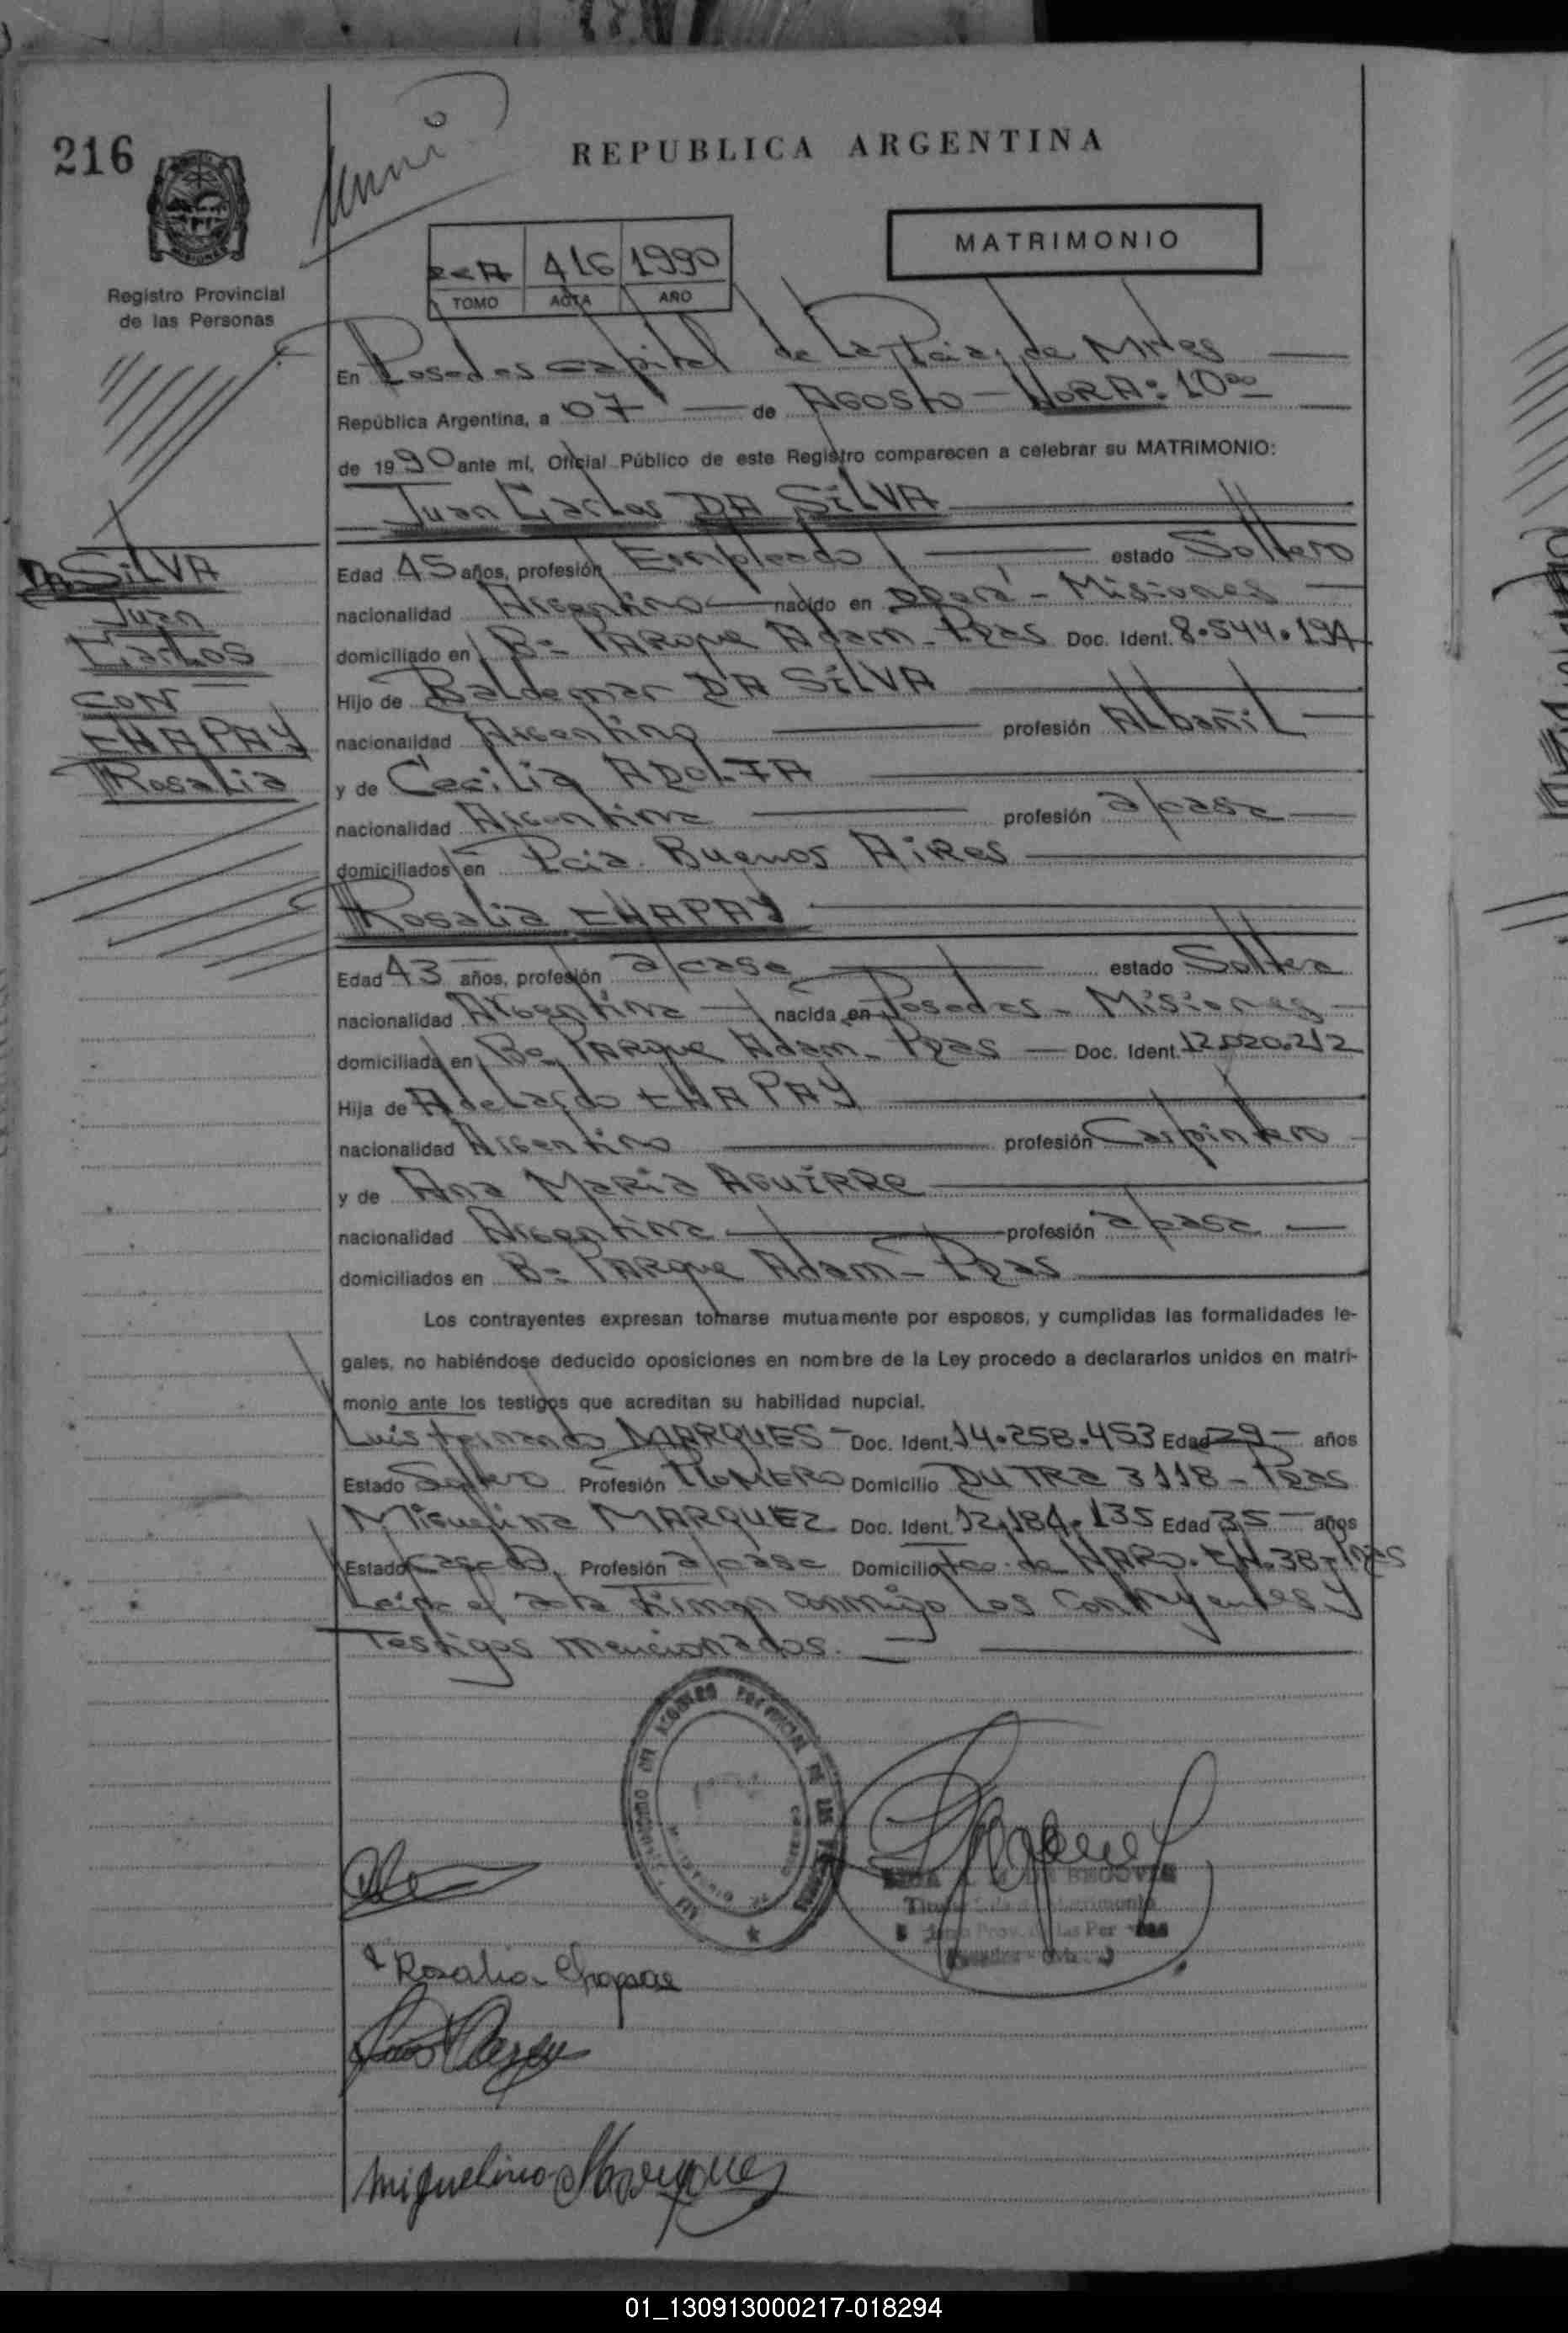 216
REPUBLICA ARGENTINA
MATRIMONIO
Registro Provincial
de las Personas
2<A 416 1990
TOMO ACTA AÑO
En Posadas capital de La Pcia, de Mnes
República Argentina, a 07 de Agosto - HORA: 10oo
de 1990 ante mí, Oficial Público de este Registro comparecen a celebrar su MATRIMONIO:
Juan Carlos DA SILVA
DA SILVA
Juan
Carlos
CON
CHAPAY
Rosalia
Edad 45 años, profesión Empleado estado Soltero
nacionalidad Argentino nacido en Oberá - Misiones
domiciliado en Bº PARque Adam - Pdas Doc. Ident. 8.544.191
Hijo de Baldemar DA SILVA
nacionalidad Argentino profesión Albañil
y de Cecilia
nacionalidad Argentina profesión a/casa
domiciliados en Pcia. Buenos Aires
Rosalia CHAPAY
Edad 43 años, profesión a/casa estado Soltera
nacionalidad Argentina nacida en Posadas - Misiones
domiciliada en Bº PARque Adam - Pdas Doc. Ident. 12.020.212
Hija de Adelardo CHAPAY
nacionalidad Argentino profesión Carpintero
y de Ana Maria AGUIRRE
nacionalidad Argentina profesión a/casa
domiciliados en Bº PARque Adam - Pdas
Los contrayentes expresan tomarse mutuamente por esposos, y cumplidas las formalidades le-
gales, no habiéndose deducido oposiciones en nombre de la Ley procedo a declararlos unidos en matri-
monio ante los testigos que acreditan su habilidad nupcial.
Luis Fernando MARQUES - Doc. Ident. 14.258.453 Edad 29 - años
Estado Soltero Profesión PLOMERO Domicilio DUTRA 3118 - Pdas
Miguelina MARQUEZ Doc. Ident. 12.184.135 Edad 35 - años
Estado casada Profesión a/casa Domicilio Fco. de HARO. CH. 38 - Pdas
Leida el acta Firman conmigo Los Contrayentes y
Testigos mencionados.
Rosalia Chapae
Miguelina Marques
01_130913000217-018294